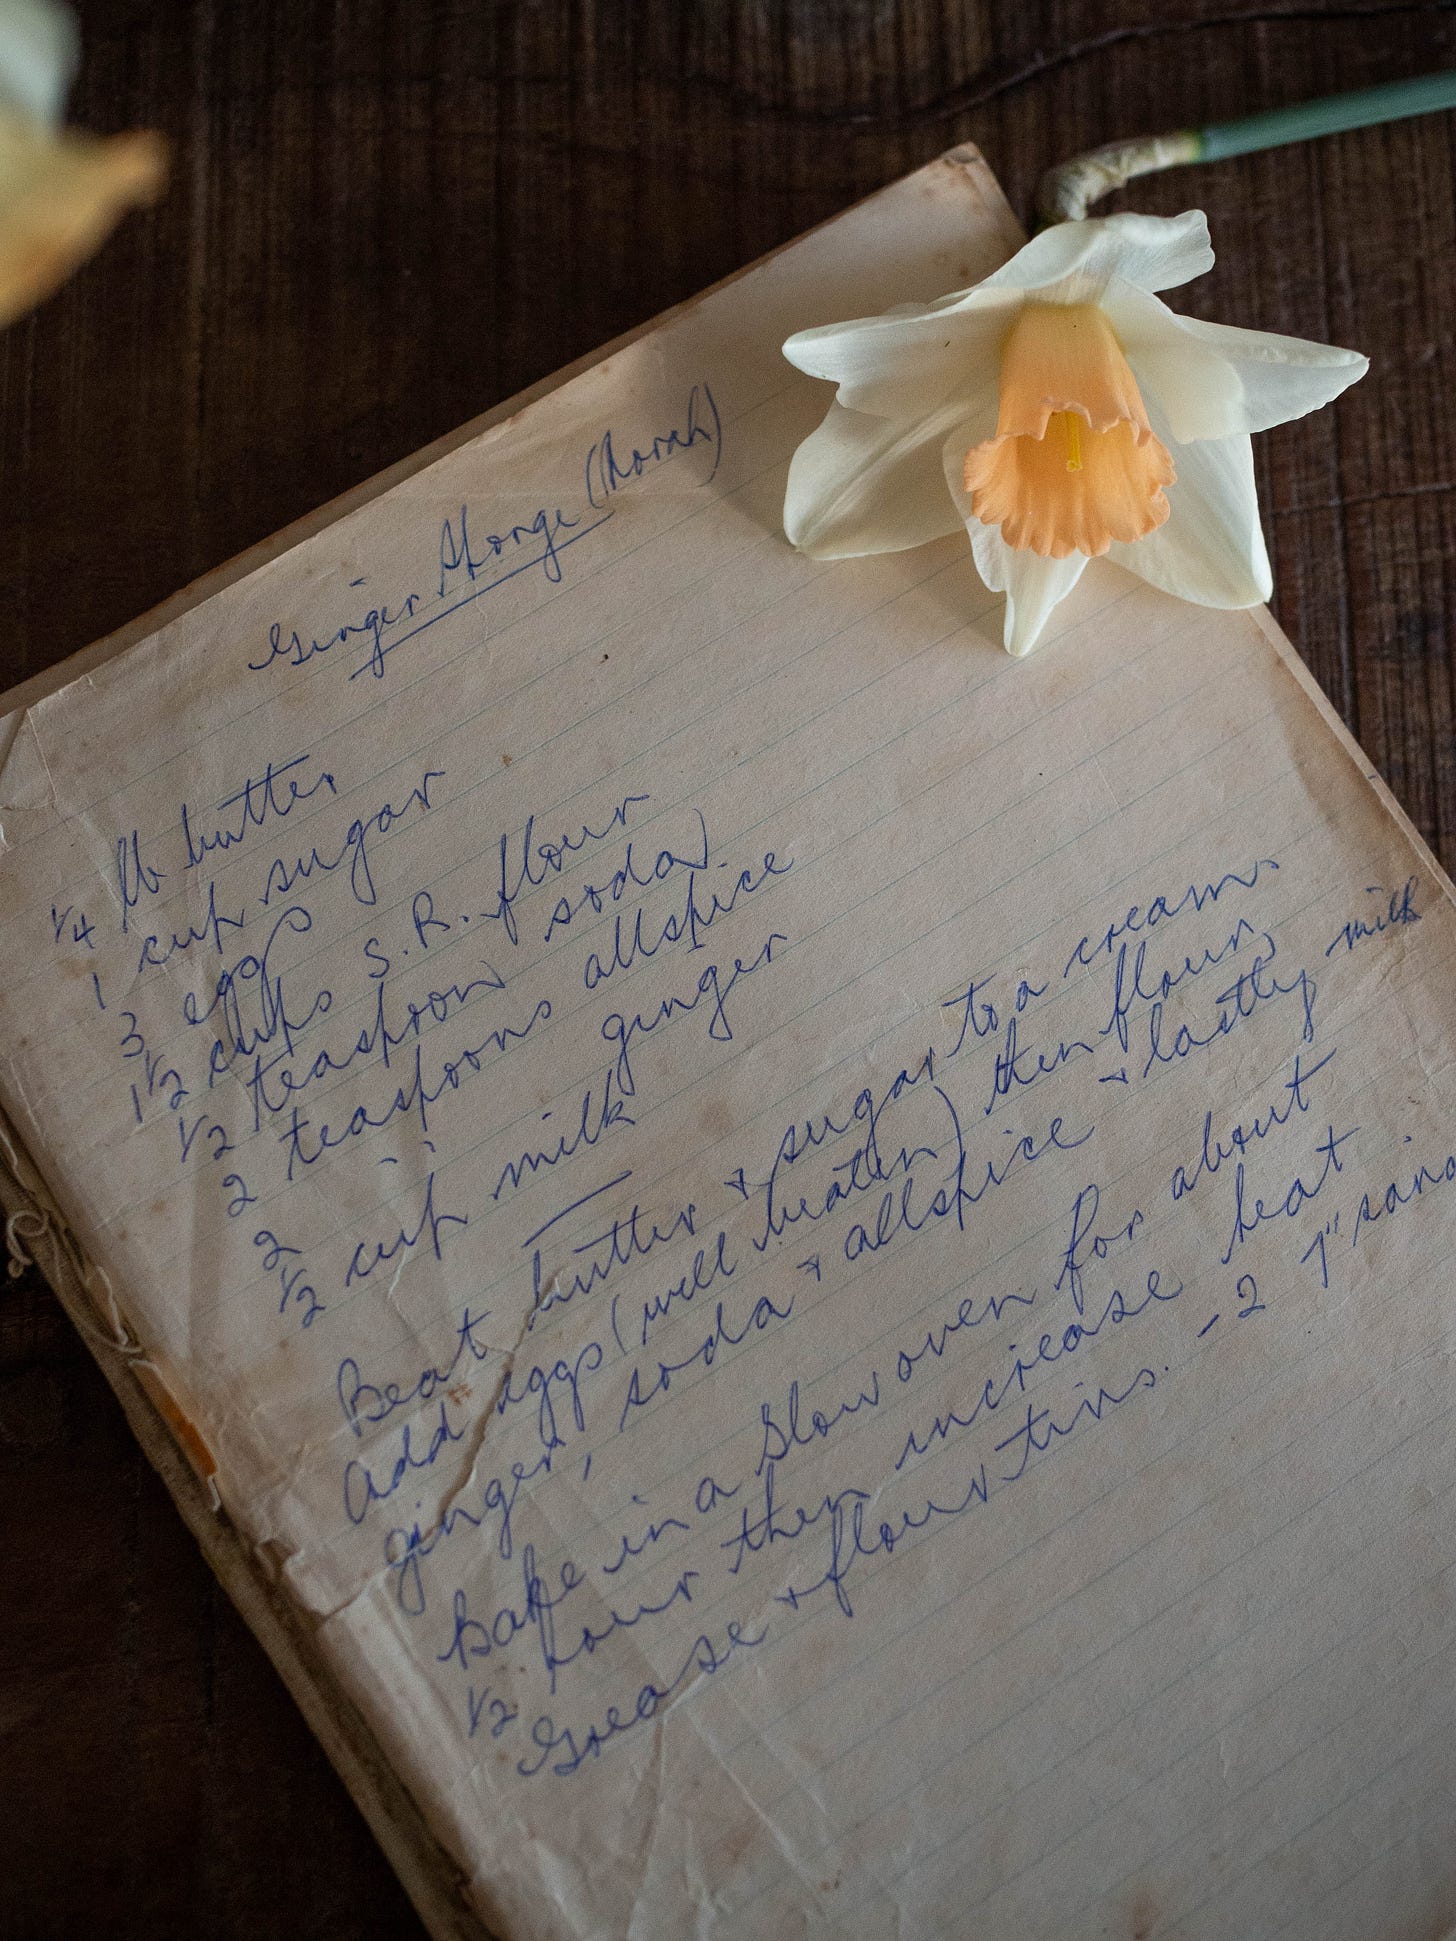 Ginger Sponge (Norah)
1/4 lb butter
1 cup sugar
3 eggs
1 1/2 cups S.R. flour
1/2 teaspoon soda
2 teaspoons allspice
2 " " ginger
1/2 cup milk
Beat butter + sugar to a cream.
Add eggs (well beaten) then flour,
ginger, soda + allspice + lastly milk
Bake in a slow oven for about
1/2 hour then increase heat
Grease + flour tins. - 2 7"